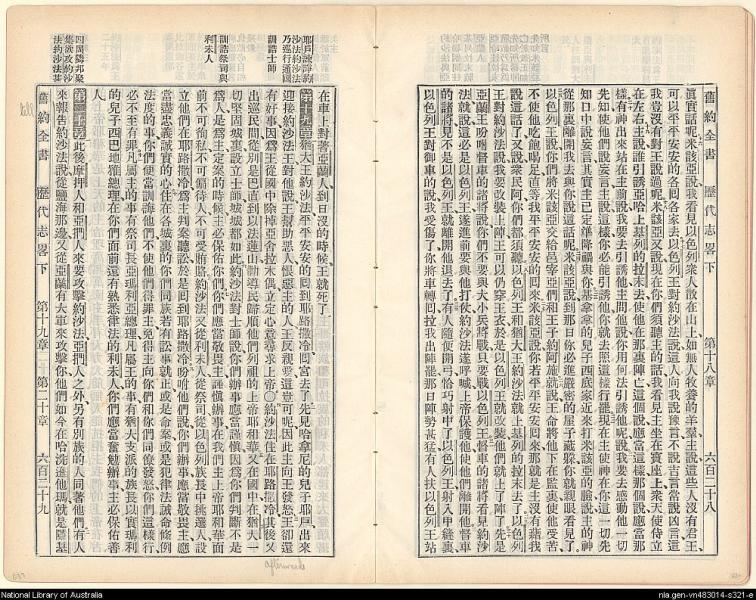 舊約全書 歷代志畧下 第十八章 六百二十八
眞實話呢米該亞說我看見以色列衆人散在山上如無人牧養的羊羣主說這些人沒有君王
可以平平安安的各囘各家去以色列王對約沙法說這人向我說豫言不說吉言常說凶言這
我豈沒有對王說過呢米該亞又說現在你們須聽主的話我看見主坐在寶座上衆天使侍立
在左右主說誰引誘亞哈上基列的拉末去使他在那裏陣亡這個說應當這樣那個說應當那
樣有神出來站在主前說我要去引誘他主問他說你用何法引誘他呢說我要去感動他一切
先知使他們說妄言主說這樣你必能引誘他你就去照這樣行罷現在主使神在你這一切先
知口中說妄言其實主已定準降禍與你
從那裏離開我去與你說這話呢米該亞說到那日你必進嚴密的屋子藏躱你就親眼看見了
以色列王說你們將米該亞交給邑宰亞們和王子約阿施就說王命將他下在監裏使他受苦
不使他吃飽喝足直等我平平安安的囘來米該亞說你若平平安安囘來那就是主沒有藉我
說這話了又說衆民阿你們都須聽以色列王和猶大王約沙法就上基列的拉末去了以色列
王對約沙法說我要改裝上陣王可以仍穿王衣於是以色列王就改裝他們就上了陣了先是
亞蘭王吩咐督車的諸將說你們不要與大小兵將戰只要戰以色列王督車的諸將看見約沙
法就說這必是以色列王遂進前要與他打仗約沙法遂呼喊上帝保護他使他們離開他督車
的諸將見不是以色列王就離開他退去了有人隨便開弓恰巧射中了以色列王射入甲縫裏
以色列王對御車的說我受傷了你將車轉囘拉我出陣罷那日陣勢甚猛有人扶以色列王站
在車上對著亞蘭人到日沒的時候王就死了
耶戶諫諍約沙法
約沙法乃巡行通國
訓誥士師
訓誥祭司與利未人
第十九章猶大王約沙法平平安安的囘到耶路撒冷囘宮去了先見哈拿尼的兒子耶戶出來
迎接約沙法王對他說王幫助惡人恨惡主的人王反親愛這豈可呢因此主向王發怒王卻還
有好事因爲王從國中除掉亞舍拉木偶立定心意尋求上帝〇約沙法住在耶路撒冷其後又
出巡民間從別是巴直到以法蓮山勸導民歸順他們列祖的上帝耶和華又在國中在猶大一
切堅固城裏設立士師城城都如此約沙法對士師說你們辦事應當謹慎因爲你們判斷不是
爲人是爲主定案的時候主必保佑你們你們應當敬畏主謹慎辦事在我們主上帝耶和華面
前不可徇私不可偏待人不可受賄賂約沙法又從利未人從祭司從以色列族長中挑選人設
立他們在耶路撒冷爲主判案聽訟於是囘到耶路撒冷吩咐他們說你們辦事應當敬畏主應
當盡忠義誠實的心住在各城裏的你們同族若有訟事就正或是命案或是爲律法誡命條例
法度的事你們便當訓誨他們不使他們得罪主免得主向你們和你們同儕發怒你們這樣行
必不至有罪凡屬主的事有祭司長亞瑪利亞總理凡屬王的事有猶大支派的族長以實瑪利
的兒子西巴地雅總理在你們面前還有熟悉律法的利未人你們應當奮勉辦事主必保佑善
人
四周隣邦聚集族攻約沙法約沙法甚
第二十章此後摩押人和亞捫人來要攻擊約沙法亞捫人之外另有別族的人同著他們有人
來報告約沙法說從鹽海那邊又從亞蘭有大軍來攻擊你他們如今在哈洗遜他瑪就是隱基
舊約全書 歷代志畧下 第十九章 第二十章 六百二十九
afterwards
National Library of Australia
nla.gen-vn483014-s321-e